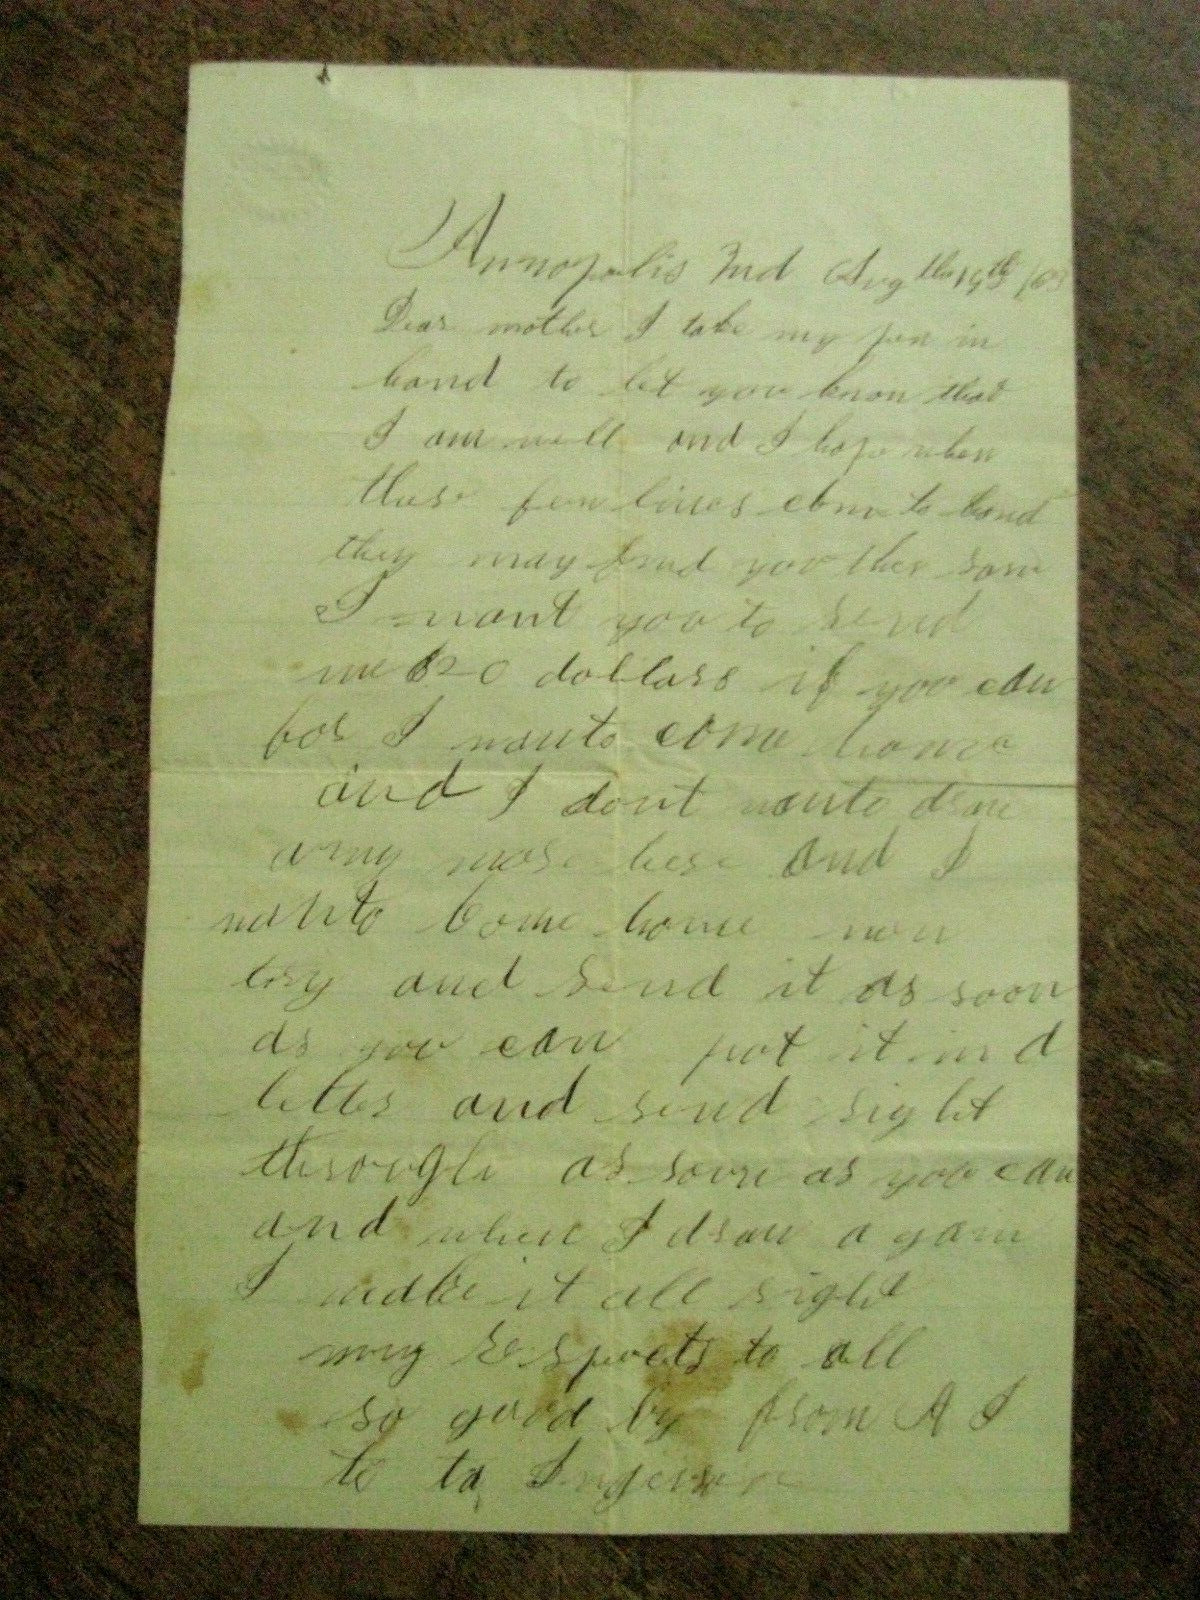 Annopolis Md Aug the 19th /63
Dear mother I take my pen in
hand to let you know that
I am well and I hope when
these few lines come to hand
they may find you the same
I want you to send
me $20 dollars if you can
for I wanto come home
and I dont wanto draw
any more here and I
wanto come home now
try and send it as soon
as you can put it in a
letter and send right
through as soon as you can
and when I draw a gain
I make it all right
my respects to all
so good by from A J
to